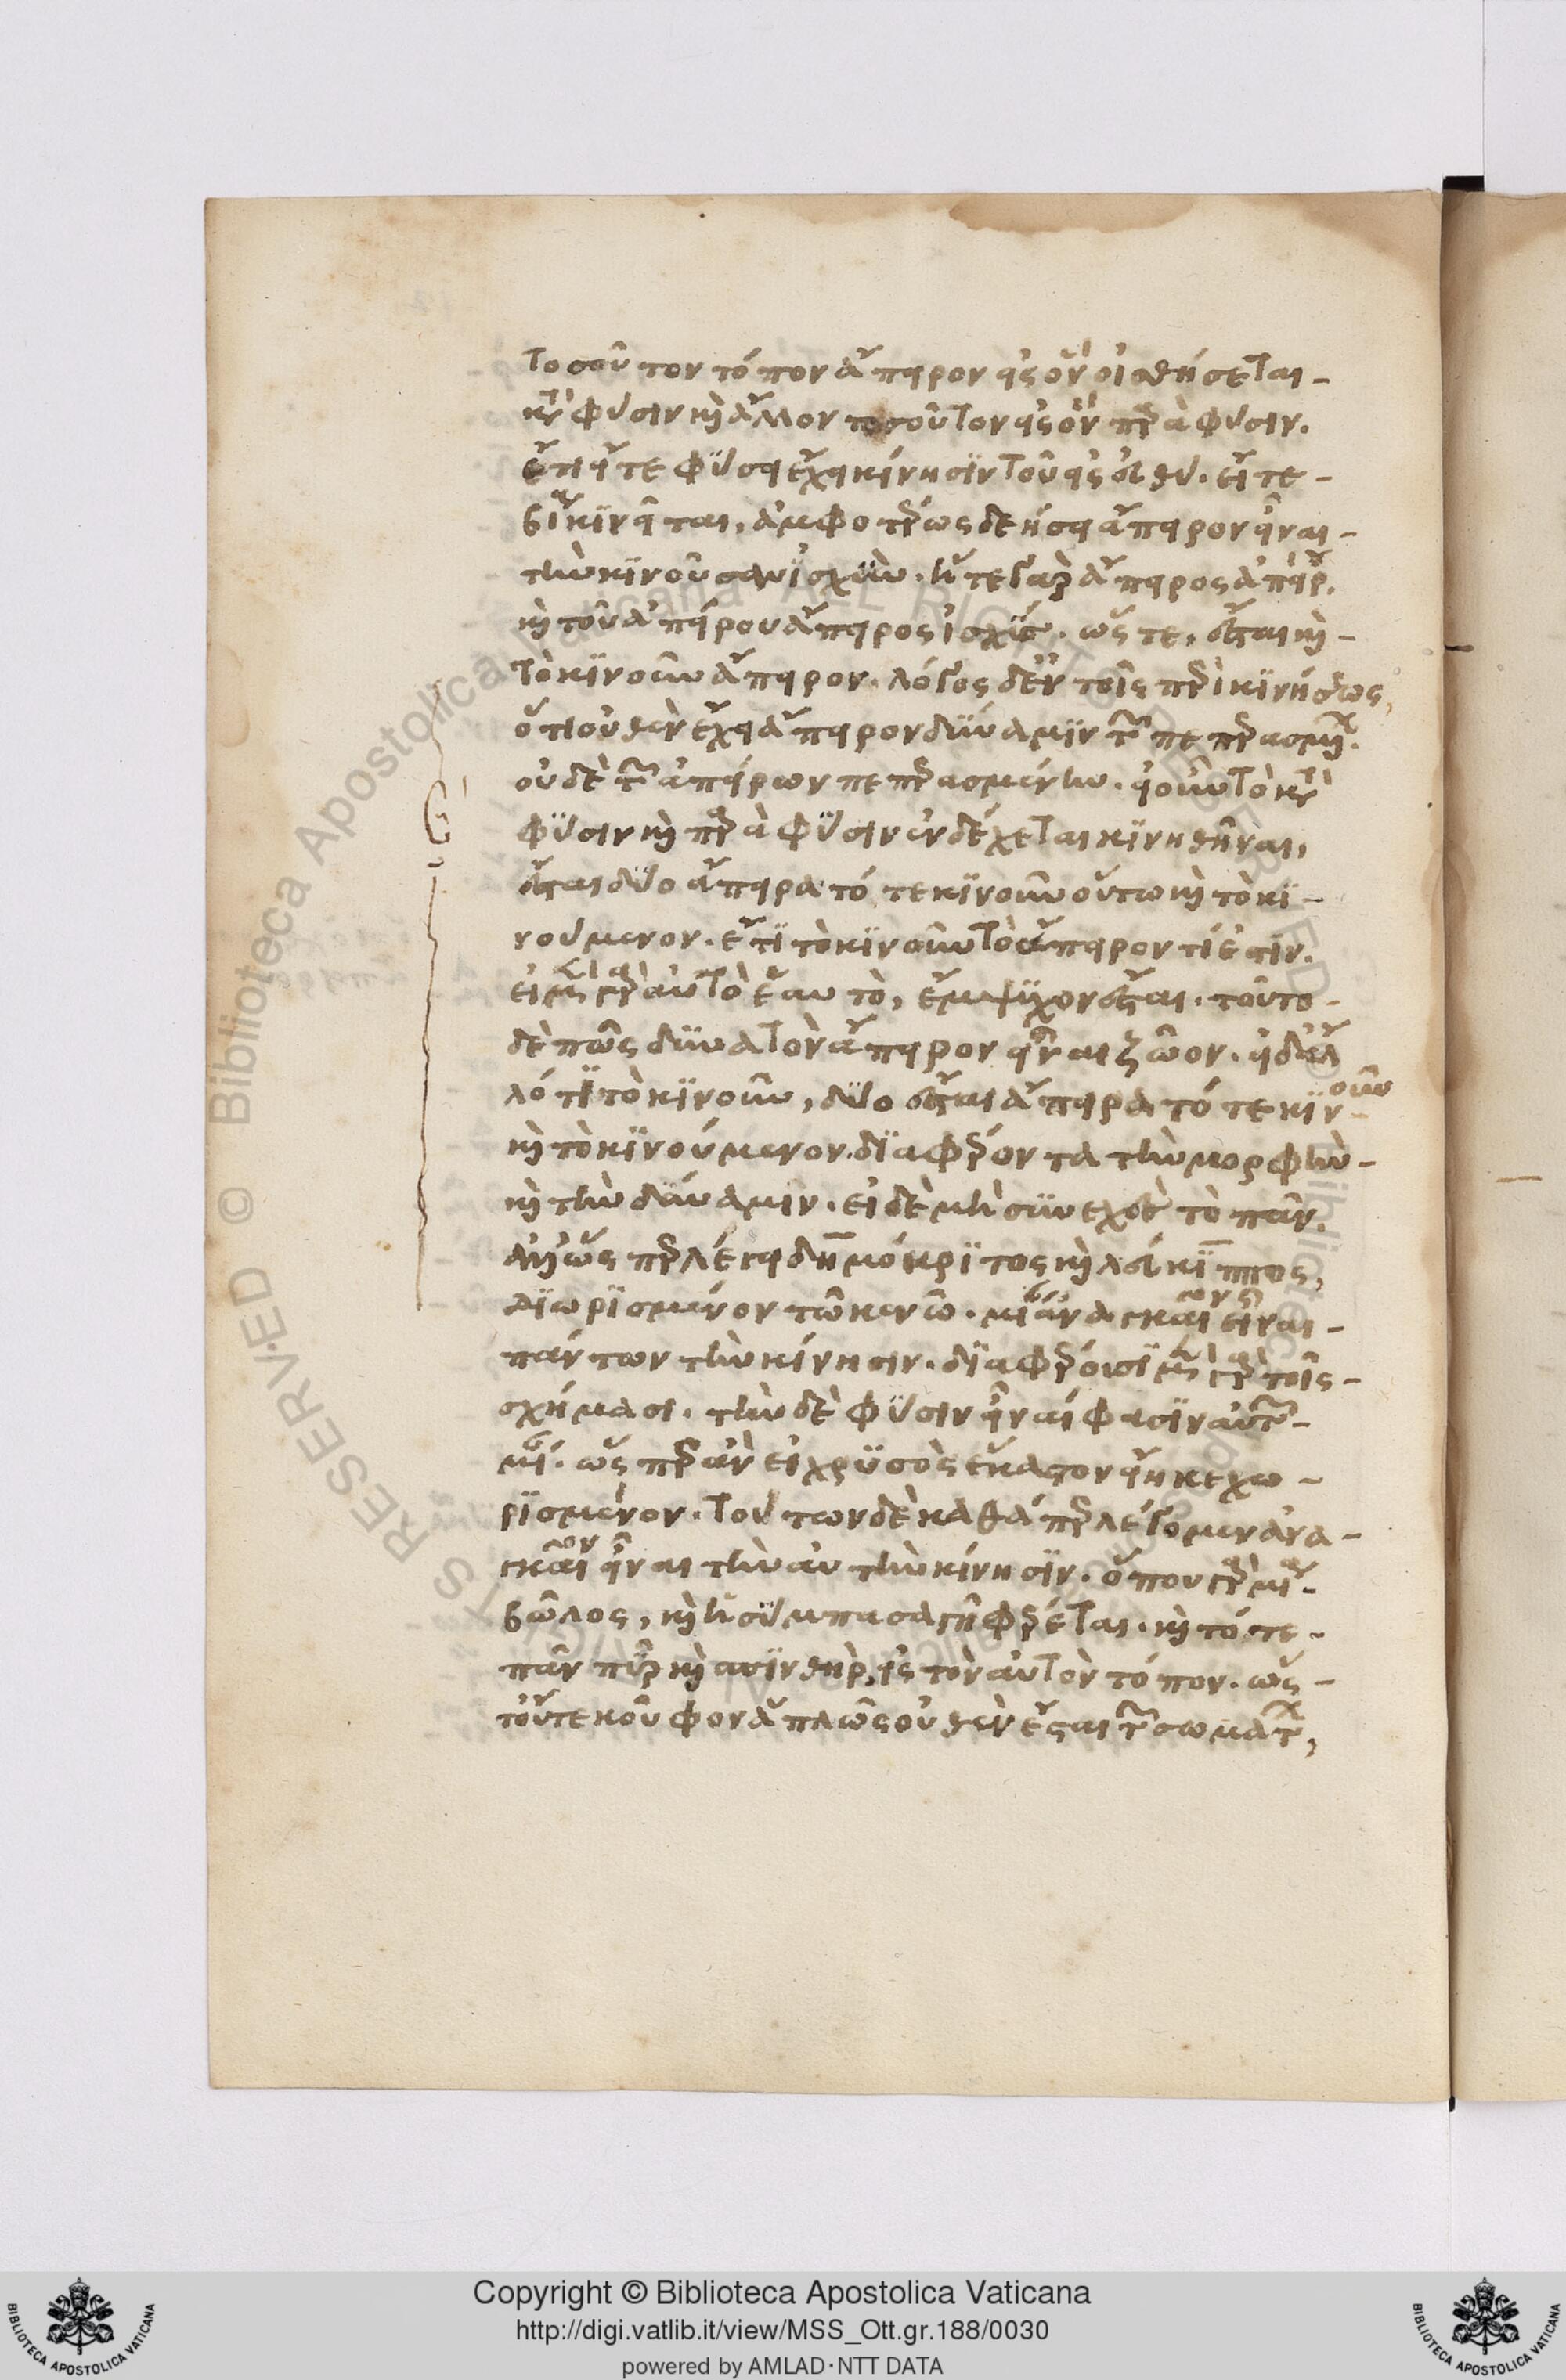 τοσοῦτον τόπον ἄπειρον εἰς ὃν οἰσθήσεται
κατὰ φύσιν καὶ ἄλλον τοσοῦτον εἰς ὃν παρὰ φύσιν.
ἔτι εἴτε φύσει ἔχει κίνησιν τοῦ εἰς εὐθύ. εἴτε
βίᾳ κινεῖται, ἀμφοτέρως δεήσει ἄπειρον εἶναι
τὴν κινοῦσαν ἰσχύν. ἥ τε γὰρ ἄπειρος ἀπείρου.
καὶ τοῦ ἀπείρου ἄπειρος ἰσχύς. ὥστε, ἔσται καὶ
τὸ κινοῦν ἄπειρον. λόγος δ' ἐν τοῖς περὶ κινήσεως,
ὅτι οὐθὲν ἔχει ἄπειρον δύναμιν τῶν πεπερασμένων.
οὐδὲ τῶν ἀπείρων πεπερασμένην. εἰ οὖν τὸ κατὰ
φύσιν καὶ παρὰ φύσιν ἐνδέχεται κινηθῆναι,
ἔσται δύο ἄπειρα τό τε κινοῦν οὕτω καὶ τὸ κι
νούμενον. ἔτι τὸ κινοῦν τὸ ἄπειρον τί ἐστιν.
εἰ μὲν γὰρ αὐτὸ ἑαυτὸ, ἔμψυχον ἔσται. τοῦτο
δὲ πῶς δυνατὸν ἄπειρον εἶναι ζῶον. εἰ δ' ἄλ
λό τι τὸ κινοῦν, δύο ἔσται ἄπειρα τό τε κινοῦν
καὶ τὸ κινούμενον. διαφέροντα τὴν μορφὴν
καὶ τὴν δύναμιν. εἰ δὲ μὴ συνεχὲς τὸ πᾶν.
ἀλλ' ὥσπερ λέγει δημόκριτος καὶ λεύκιππος,
διωρισμένον τῶ κενῶ. μίαν ἀναγκαῖον εἶναι
πάντων τὴν κίνησιν. διαφέρουσι μὲν γὰρ τοῖς
σχήμασι. τὴν δὲ φύσιν εἶναί φασιν αὐτῶν
μίαν. ὥσπερ ἂν εἰ χρυσὸς ἕκαστον εἴη κεχω
ρισμένον. τούτων δὲ καθάπερ λέγομεν ἀνα
γκαῖον εἶναι τὴν αὐτὴν κίνησιν. ὅπου γὰρ μία
βῶλος, καὶ ἡ σύμπασα γῆ φέρεται. καὶ τό τε
πᾶν πῦρ καὶ σπινθὴρ, εἰς τὸν αὐτὸν τόπον. ὥς
τ' οὔτε κοῦφον ἁπλῶς οὐθὲν ἔσται τῶν σωμάτων,
Copyright © Biblioteca Apostolica Vaticana
http://digi.vatlib.it/view/MSS_Ott.gr.188/0030
powered by AMLAD·NTT DATA
BIBLIOTECA APOSTOLICA VATICANA
BIBLIOTECA APOSTOLICA VATICANA